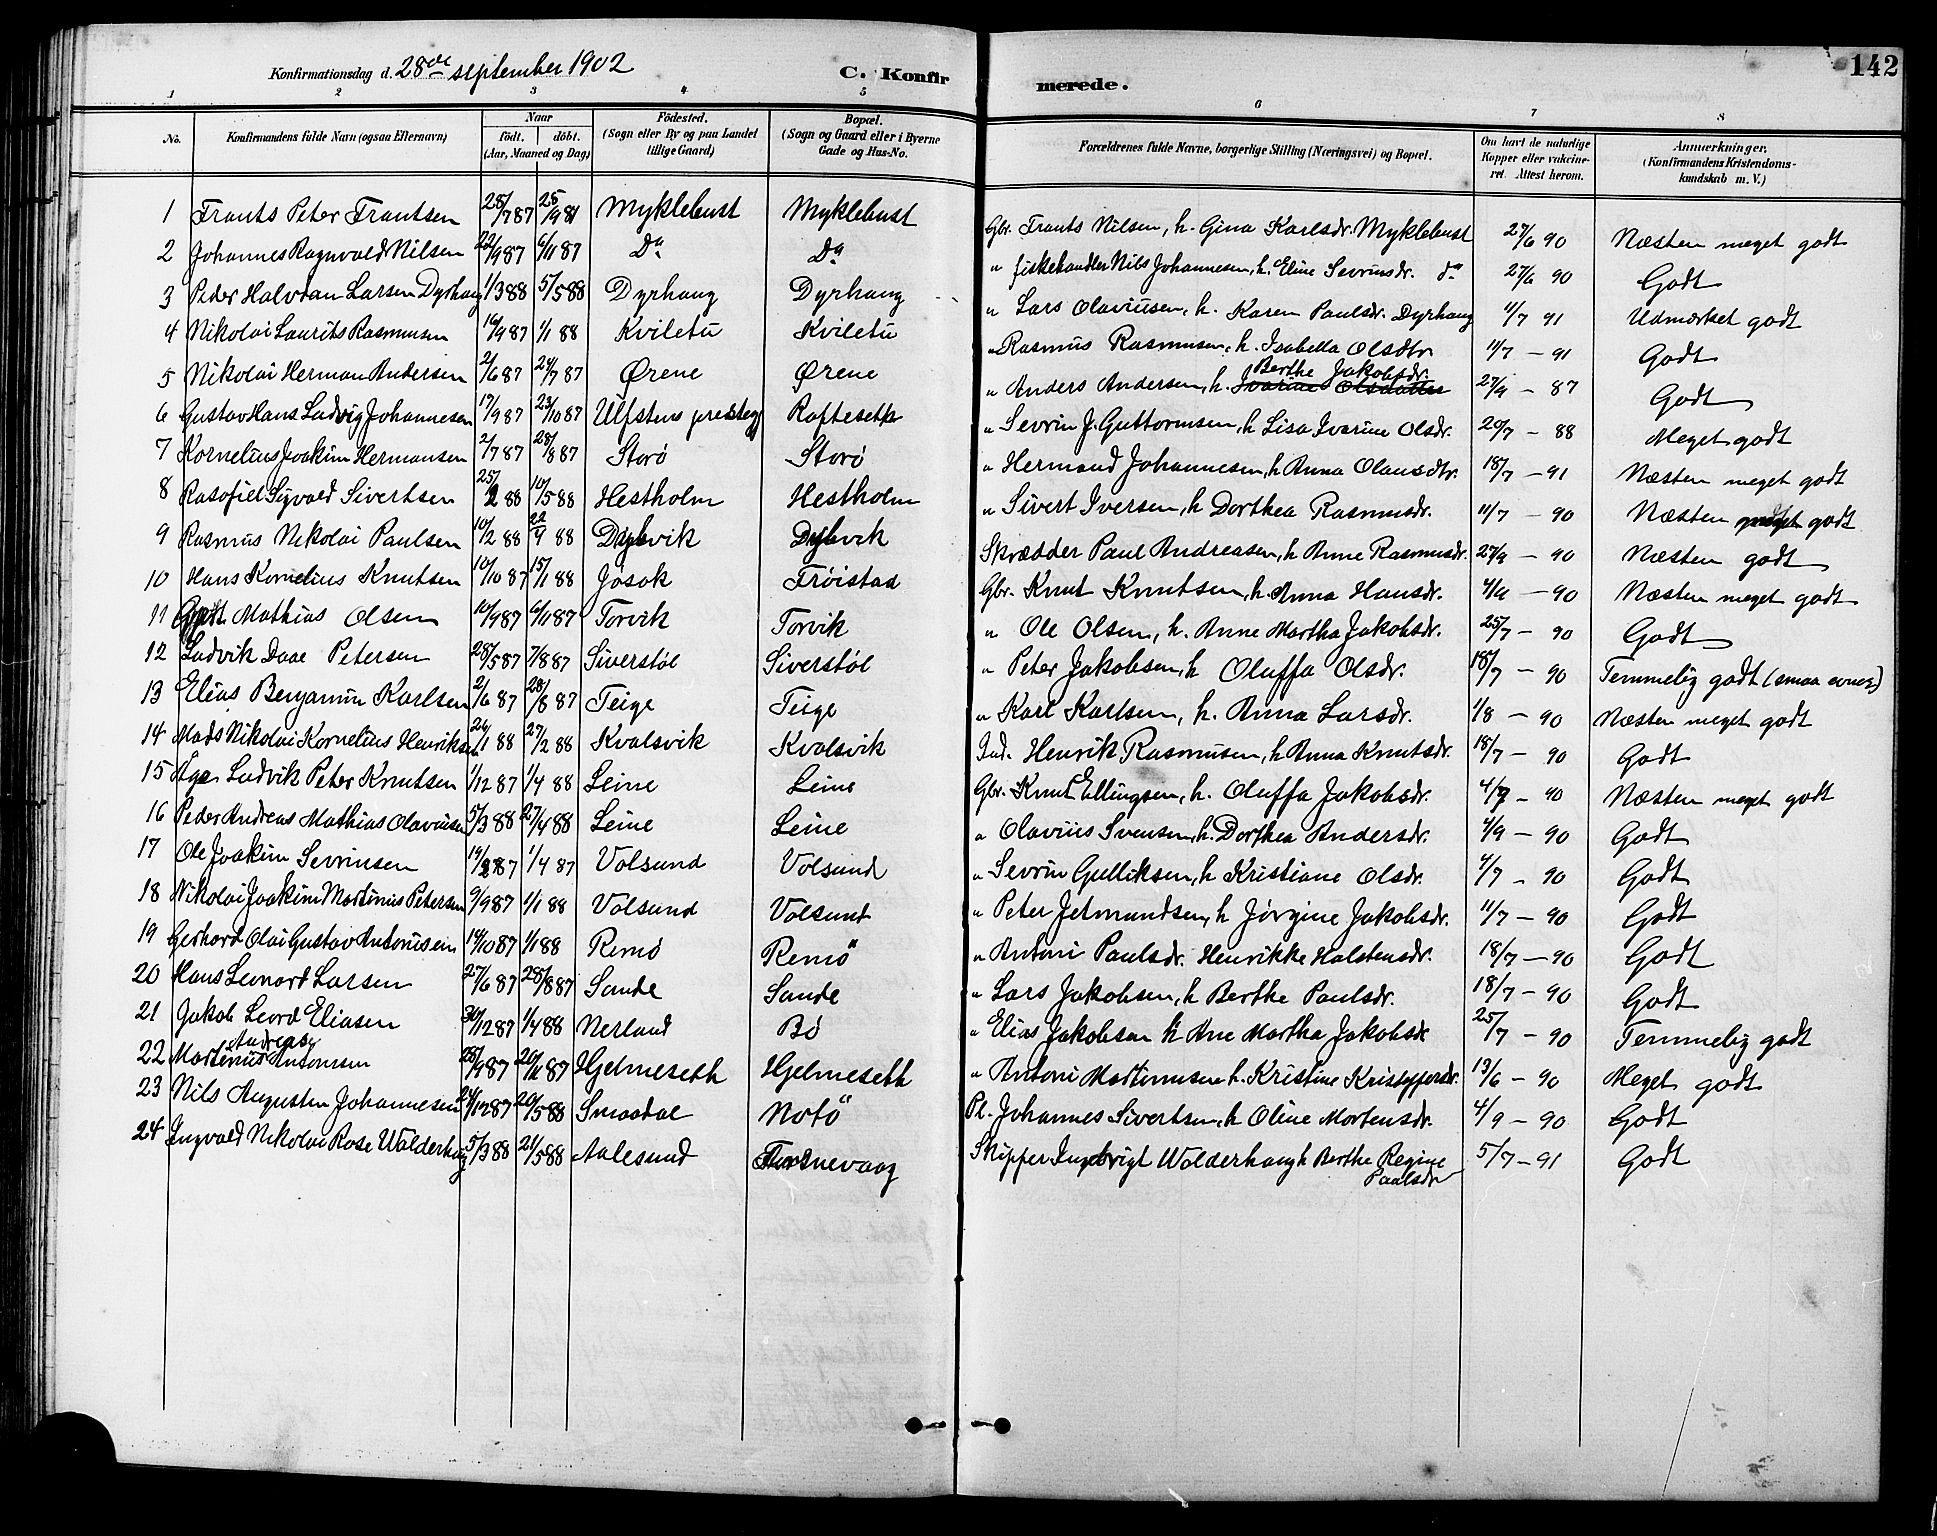 142
Konfirmationsdag d. 28de september 1902
C. Konfirmerede.
1 2 3 4 5 6 7 8
No. Konfirmandens fulde Navn (ogsaa Efternavn) Naar født. døbt. (Aar, Maaned og Dag) Fødested. (Sogn eller By og paa Landet tillige Gaard) Bopæl. (Sogn og Gaard eller i Byerne Gade og Hus-No. Forældrenes fulde Navne, borgerlige Stilling (Næringsvei) og Bopæl. Om havt de naturlige Kopper eller vakcineret. Attest herom. Anmærkninger. (Konfirmandens Kristendomskundskab m. V.)
1 Frants Peter Frantsen 28/7 87 25/9 87 Myklebust Myklebust Gbr. Frants Nilsen, h. Gina Karlsdr. Myklebust 27/6 90 Næsten meget godt
2 Johannes Ragnvald Nilsen 22/9 87 6/11 87 Do Do " fiskehandler Nils Johannesen, h. Eline Sevrinsdr. do 27/6 90 Godt
3 Peder Halvdan Larsen Dyrhaug 1/3 88 5/5 88 Dyrhaug Dyrhaug " Lars Olaviusen, h. Karen Paulsdr. Dyrhaug 11/7 91 Udmærket godt
4 Nikolai Laurits Rasmusen 16/9 87 1/1 88 Kviletu Kviletu " Rasmus Rasmusen, h. Isabella Olsdtr 11/7 - 91 Godt
5 Nikolai Herman Andersen 2/6 87 24/7 87 Ørene Ørene " Anders Andersen, h. Ivarine Olsdatter Berthe Jakobsdr. 27/9 - 87 Godt
6 Gustav Hans Ludvig Johannesen 17/9 87 23/10 87 Ulfstens prestegj Rafteseth " Sevrin J. Guttormsen, h Lisa Ivarine Olsdr. 20/7 - 88 Meget godt
7 Kornelius Joakim Hermansen 2/7 87 28/8 87 Storø Storø " Hermand Johannesen, h Anna Olausdtr. 18/7 - 91 Næsten meget godt
8 Rasofiel Sigvald Sivertsen 25/2 88 10/5 88 Hestholm Hestholm " Sivert Iversen, h Dorthea Rasmusdr. 11/7 - 90 Næsten meget godt
9 Rasmus Nikolai Paulsen 10/2 88 22/9 88 Dybvik Dybvik Skrædder Paul Andreasen, h Anne Rasmusdr. 27/9 - 90 Næsten godt
10 Hans Kornelius Knutsen 10/10 87 15/1 88 Jøsok Frøistad Gbr. Knut Knutsen, h. Anna Hansdr. 4/9 - 90 Næsten meget godt
11 Mathias Olsen 10/9 87 6/11 87 Torvik Torvik " Ole Olsen, h. Anne Martha Jakobsdr. 25/7 - 90 Godt
12 Ludvik Daae Petersen 28/5 87 7/8 87 Siverstøl Siverstøl " Peter Jakobsen, h Oluffa Olsdr. 18/7 - 90 Temmelig godt (smaa evner)
13 Elias Benjamin Karlsen 2/6 87 28/8 87 Teige Teige " Karl Karlsen, h. Anna Larsdr. 1/8 - 90 Næsten meget godt
14 Mads Nikolai Kornelius Henriksen 26/1 88 27/2 88 Kvalsvik Kvalsvik Ind. Henrik Rasmusen, h Anna Knutsdr. 18/7 - 90 Godt
15 Age Ludvik Peter Knutsen 1/12 87 1/4 88 Leine Leine Gbr. Knut Ellingsen, h. Oluffa Jakobsdr. 4/7 - 90 Næsten meget godt
16 Peder Andreas Mathias Olaviusen 5/3 88 27/4 88 Leine Leine " Olavius Svensen, h. Dorthea Andersdr. 4/9 - 90 Godt
17 Ole Joakim Sevrinsen 19/2 87 1/4 87 Volsund Volsund " Sevrin Gulliksen, h Kristiane Olsdr. 4/7 - 90 Godt
18 Nikolai Joakim Martinus Petersen 9/9 87 1/1 88 Volsund Volsund " Peter Jetmundsen, h Jørgine Jakobsdr. 11/7 - 90 Godt
19 Gerhard Olai Gustav Antonisen 14/10 87 1/1 88 Remø Remö " Antoni Paulsdr. Henrikke Halstensdr. 18/7 - 90 Godt
20 Hans Leonard Larsen 27/6 87 28/8 87 Sande Sande " Lars Jakobsen, h Berthe Paulsdr. 18/7 - 90 Godt
21 Jakob Leord Eliasen 30/12 87 1/4 88 Nerland Bø " Elias Jakobsen h Ane Martha Jakobsdr 25/7 - 90 Temmelig godt
22 Martinus Andreas Antonisen 28/9 87 20/11 87 Hjelmeseth Hjelmeseth " Antoni Martinusen h. Kristine Kristoffersdr. 13/6 - 90 Meget godt
23 Nils Augusten Johannesen 24/12 87 20/5 88 Smaadal Notö Pl. Johannes Sivertsen, h Oline Mortensdr. 4/9 - 90 Godt
24 Ingvald Nikolai Rose Walderhaug 5/3 88 21/5 88 Aalesund Fosnevaag Skipper Ingebrigt Walderhaug h Berthe Regine Paulsdr 5/7 - 91 Godt